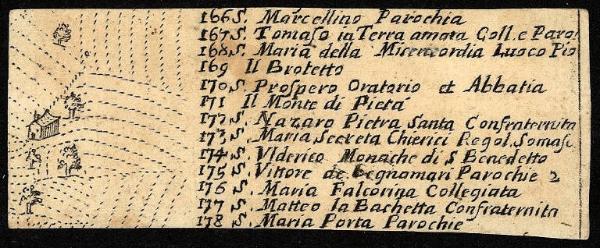 166 S. Marcellino Parochia
167 S. Tomaso in Terra amata Coll. e Paro
168 S. Maria della Misericordia Luoco Pio
169 Il Broletto
170 S. Prospero Oratorio et Abbatia
171 Il Monte di Pietá
172 S. Nazaro Pietra Santa Confraternita
173 S. Maria Secreta Chierici Regol. Somas
174 S. Vlderico Monache di S Benedetto
175 S. Vittore de Legnamari Parochie 2
176 S. Maria Falcorina Collegiata
177 S. Matteo la Bachetta Confraternita
178 S. Maria Porta Parochie